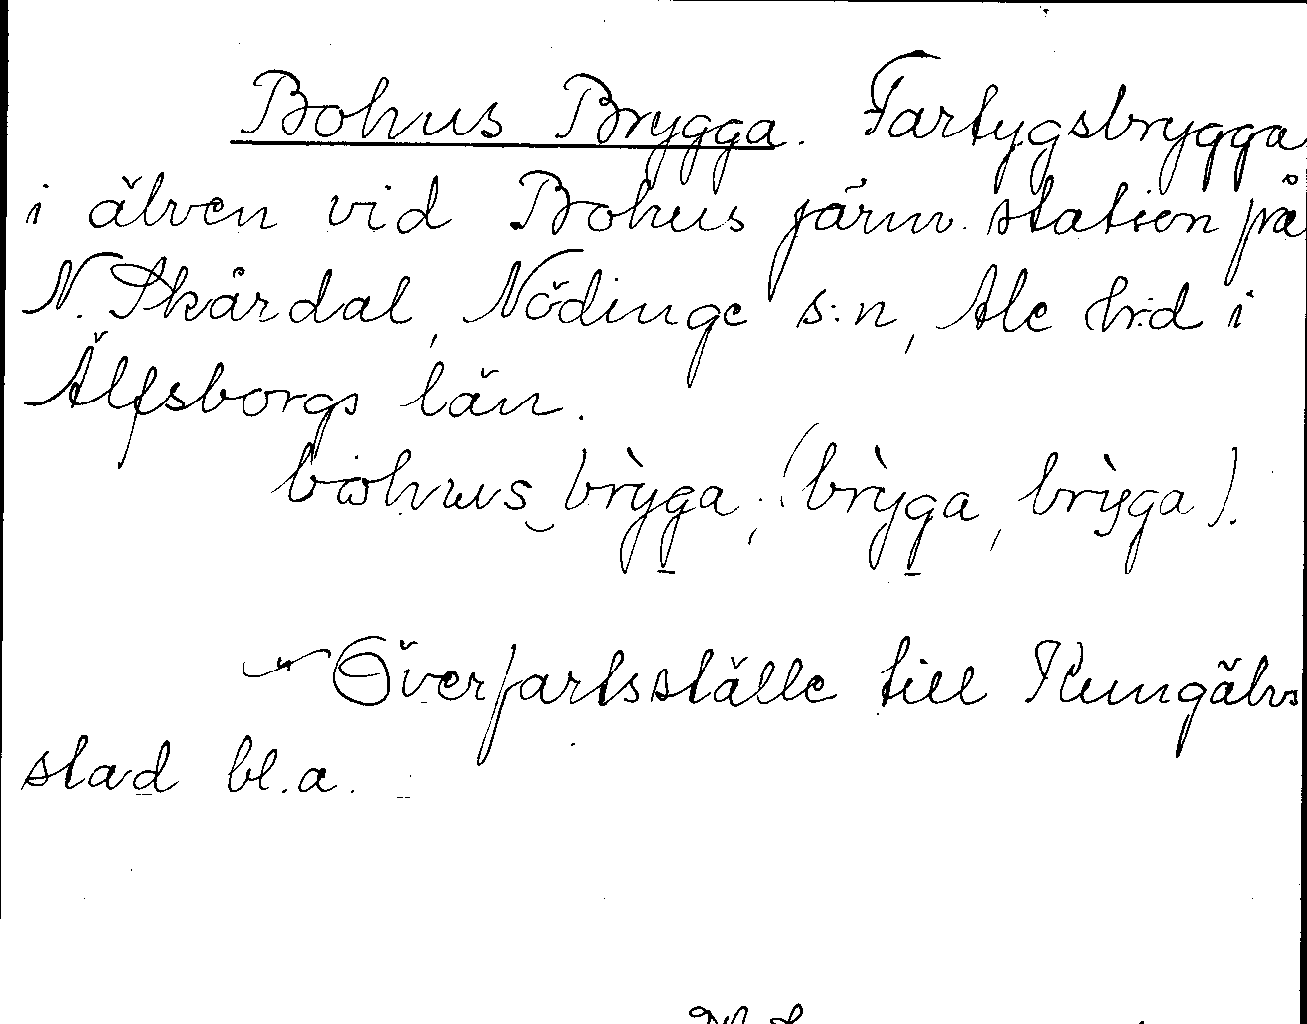 Bohus Brygga. Fartygsbrygga
i älven vid Bohus järnv. station på
N. Skårdal, Nödinge s:n, Ale hr:d i
Älfsborgs län.
bohus brỳga, (brỳga, brỳga).
Överfartsställe till Kungälvs
stad bl.a.